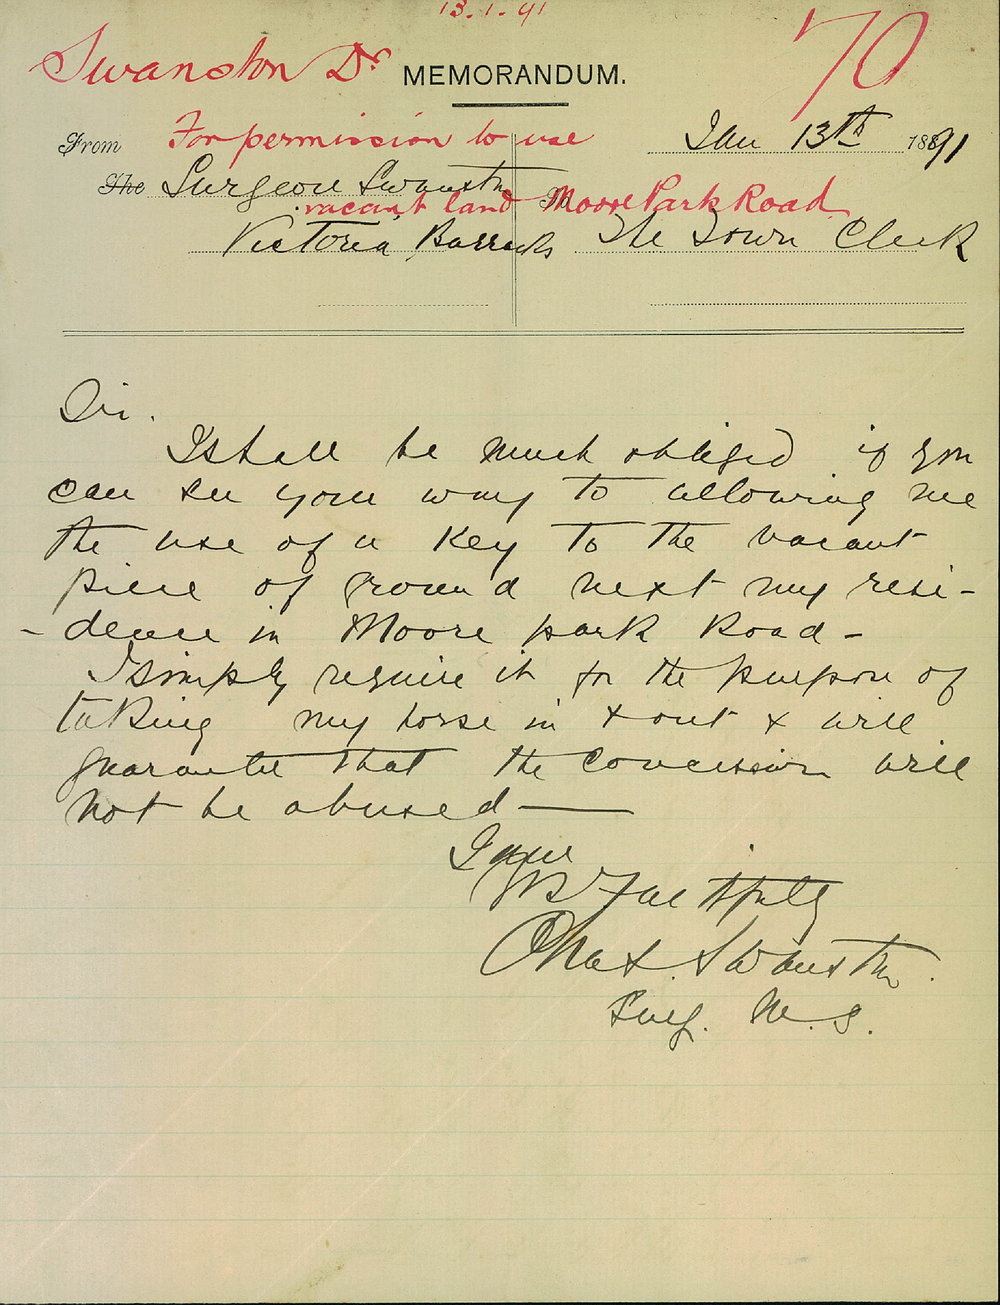 13.1.91
Swanston Dr
70
MEMORANDUM.
For permission to use
From
Jan 13th 1891
The Surgeon Swanston
vacant land Moore Park Road
To
Victoria Barracks
The Town Clerk
Sir.
I shall be much obliged if you
can see your way to allowing me
the use of a Key to the vacant
piece of ground next my resi-
-dence in Moore park Road -
I simply require it for the purpose of
taking my horse in & out & will
guarantee that the concession will
not be abused
I am
Yrs Faithfully
Chas. Swanston.
Surg. M. S.